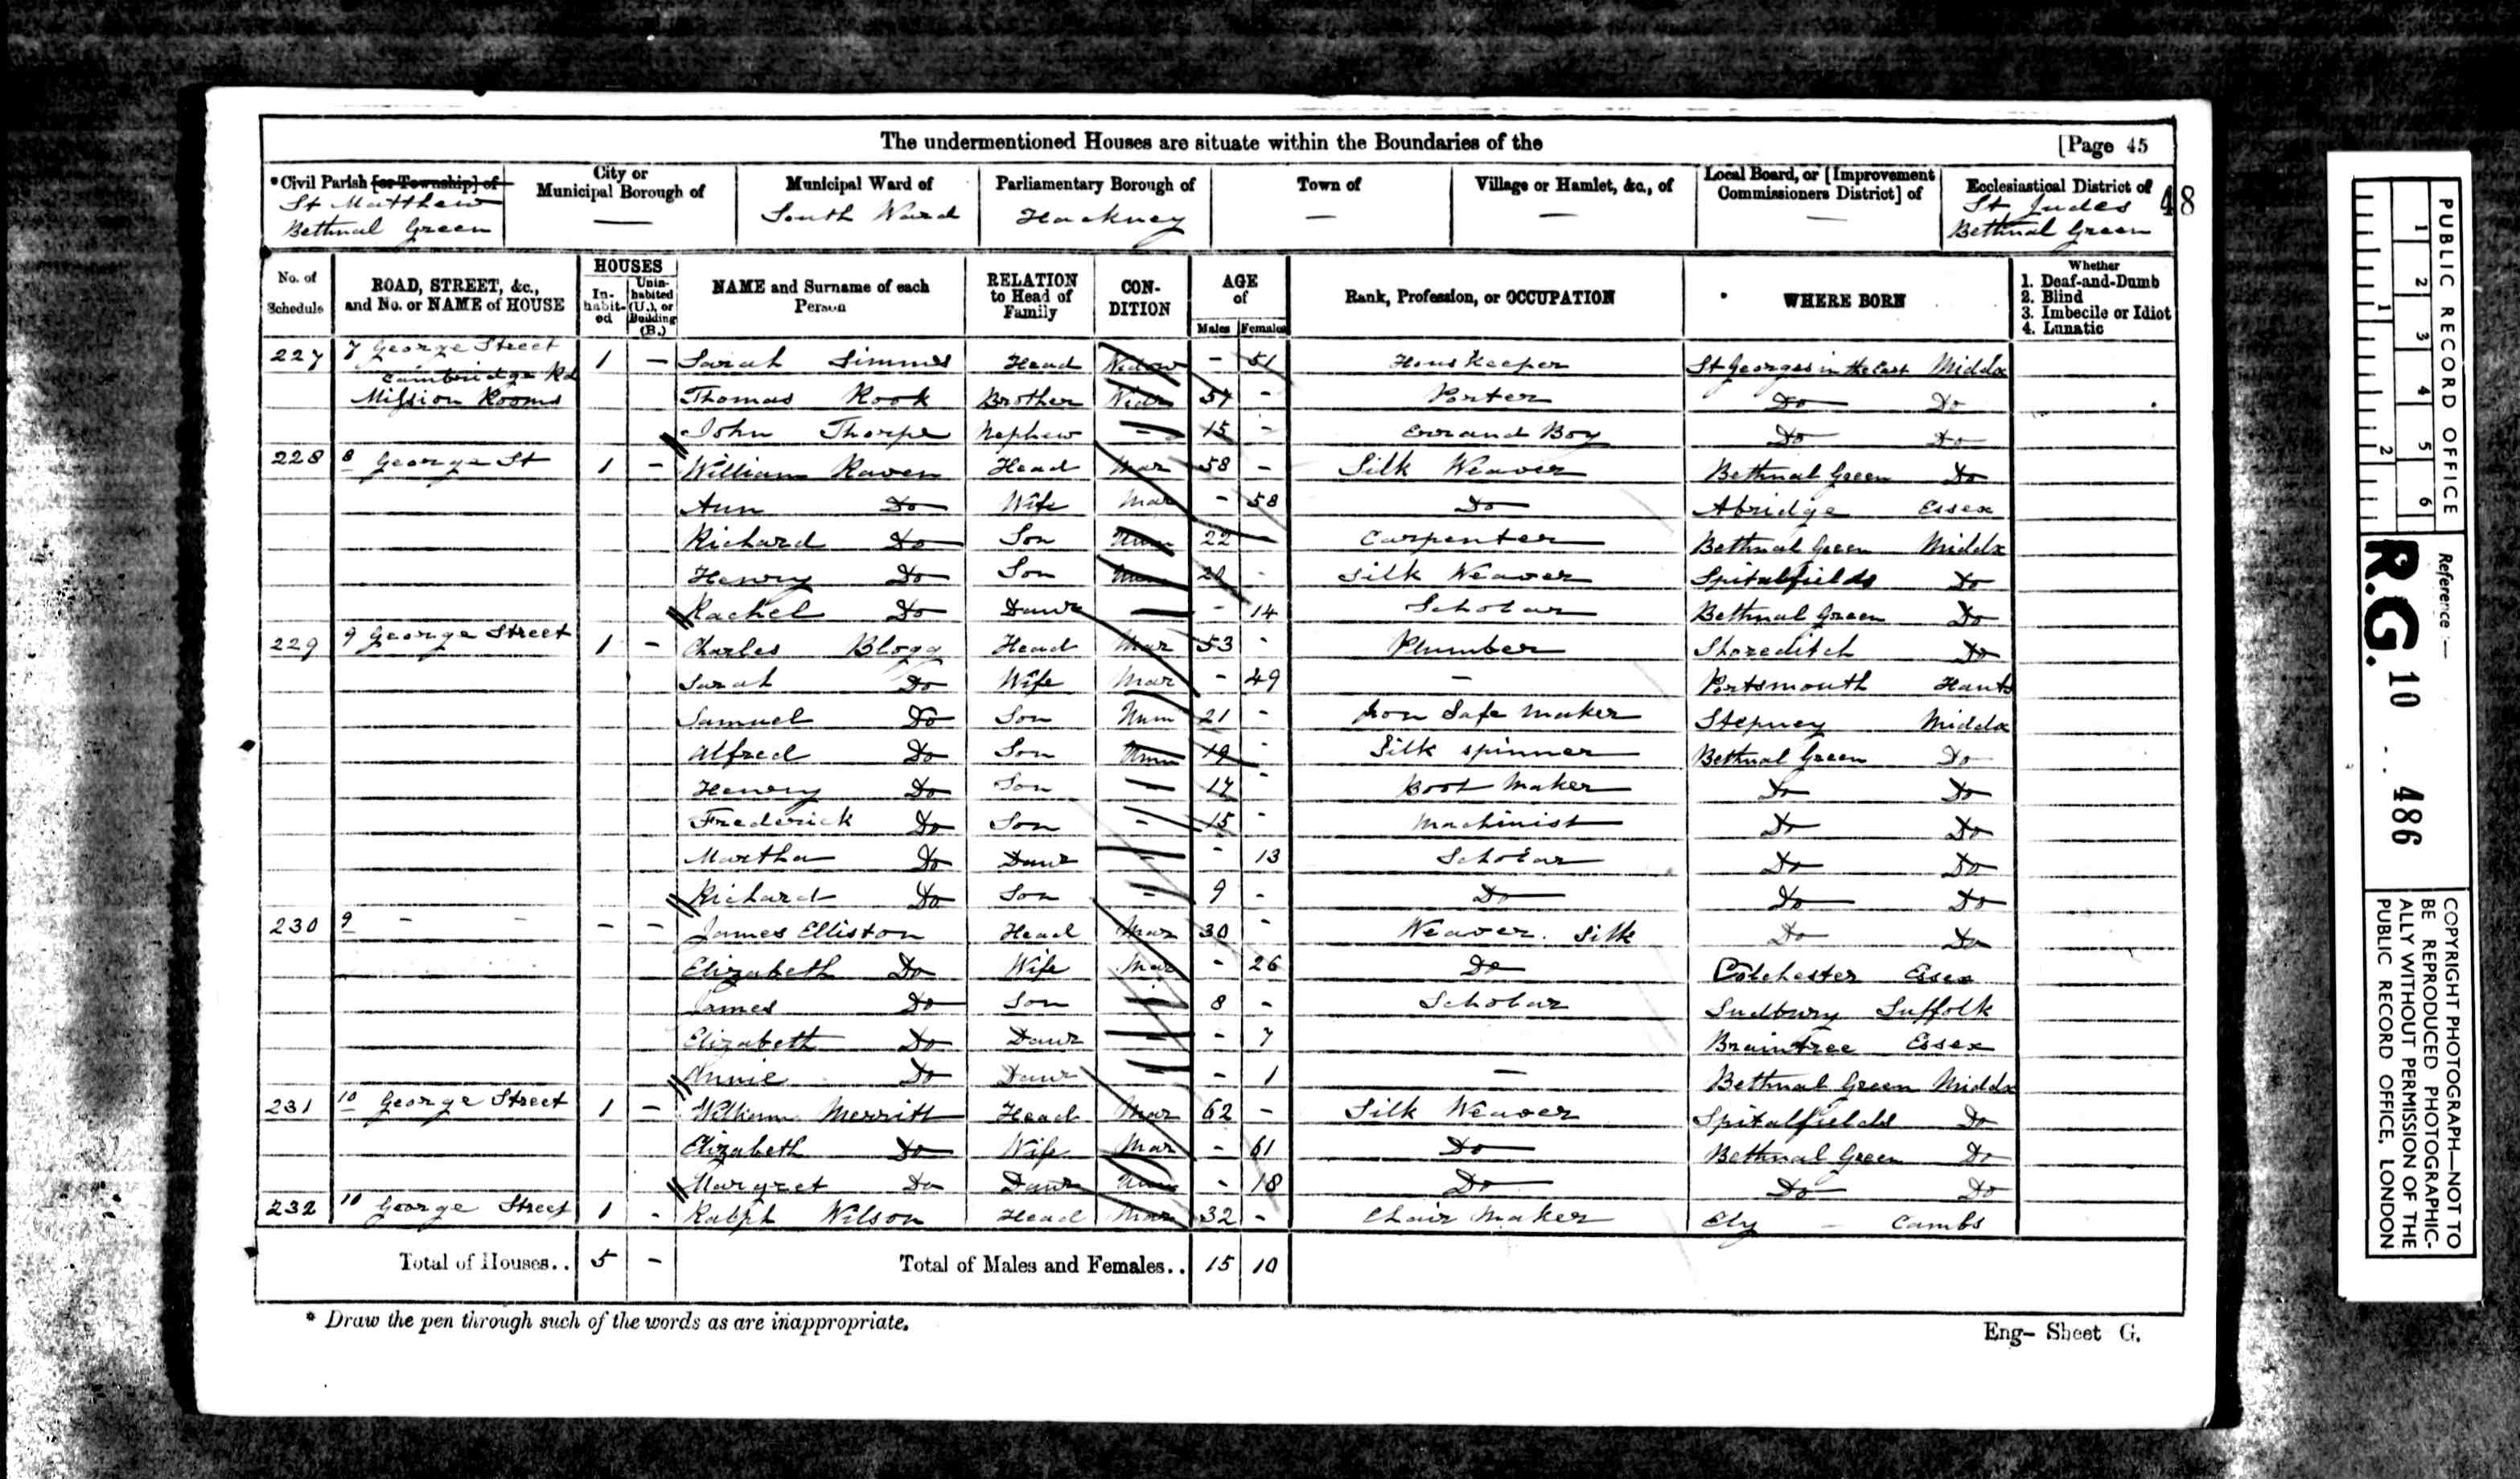 The undermentioned Houses are situate within the Boundaries of the [Page 45
*Civil Parish [or Township] of St Matthew Bethnal Green
City or Municipal Borough of —
Municipal Ward of South Ward
Parliamentary Borough of Hackney
Town of —
Village or Hamlet, &c., of —
Local Board, or [Improvement Commissioners District] of —
Ecclesiastical District of St Judes Bethnal Green
48
No. of Schedule
ROAD, STREET, &c., and No. or NAME of HOUSE
HOUSES
In-habit-ed
Unin-habited (U.), or Building (B.)
NAME and Surname of each Person
RELATION to Head of Family
CON-DITION
AGE of
Males Females
Rank, Profession, or OCCUPATION
WHERE BORN
Whether
1. Deaf-and-Dumb
2. Blind
3. Imbecile or Idiot
4. Lunatic
227 7 George Street Cambridge Rd 1 — Sarah Simms Head Widow - 51 Houskeeper St Georges in the East Middx
Mission Rooms Thomas Rook Brother Widr 57 - Porter Do Do
John Thorpe Nephew - 15 - Errand Boy Do Do
228 8 George St 1 - William Raven Head Mar 58 - Silk Weaver Bethnal Green Do
Ann Do Wife Mar - 58 Do Abridge Essex
Richard Do Son Unm 22 - Carpenter Bethnal Green Middx
Henry Do Son Unm 20 - Silk Weaver Spitalfields Do
Rachel Do Daur - - 14 Scholar Bethnal Green Do
229 9 George Street 1 - Charles Blogg Head Mar 53 - Plumber Shoreditch Do
Sarah Do Wife Mar - 49 - Portsmouth Hants
Samuel Do Son Unm 21 - Iron Safe Maker Stepney Middx
Alfred Do Son Unm 19 - Silk Spinner Bethnal Green Do
Henry Do Son - 17 - Boot Maker Do Do
Frederick Do Son - 15 - Machinist Do Do
Martha Do Daur - - 13 Scholar Do Do
Richard Do Son - 9 - Do Do Do
230 9 - - - - James Elliston Head Mar 30 - Weaver. Silk Do Do
Elizabeth Do Wife Mar - 26 Do Colchester Essex
James Do Son - 8 - Scholar Sudbury Suffolk
Elizabeth Do Daur - - 7 Braintree Essex
Annie Do Daur - - 1 - Bethnal Green Middx
231 10 George Street 1 - William Merritt Head Mar 62 - Silk Weaver Spitalfields Do
Elizabeth Do Wife Mar - 61 Do Bethnal Green Do
Margret Do Daur Unm - 18 Do Do Do
232 10 George Street 1 - Ralph Wilson Head Mar 32 - Chair Maker Ely - Cambs
Total of Houses.. 5 - Total of Males and Females.. 15 10
* Draw the pen through such of the words as are inappropriate.
Eng- Sheet G.
PUBLIC RECORD OFFICE
1 2 3 4 5 6
1 2
Reference:—
R.G. 10 .. 486
COPYRIGHT PHOTOGRAPH—NOT TO
BE REPRODUCED PHOTOGRAPHIC-
ALLY WITHOUT PERMISSION OF THE
PUBLIC RECORD OFFICE, LONDON